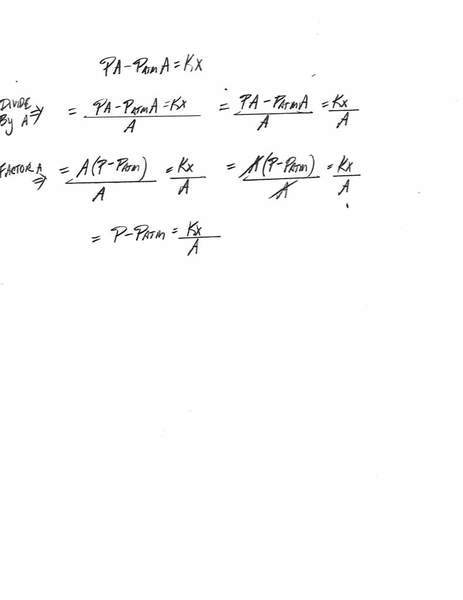 PA - PATM A = Kx
DIVIDE By A ⇒ = PA - PATM A = Kx / A = PA - PATM A / A = Kx / A
FACTOR A ⇒ = A(P - PATM) / A = Kx / A = A(P - PATM) / A = Kx / A
= P - PATM = Kx / A